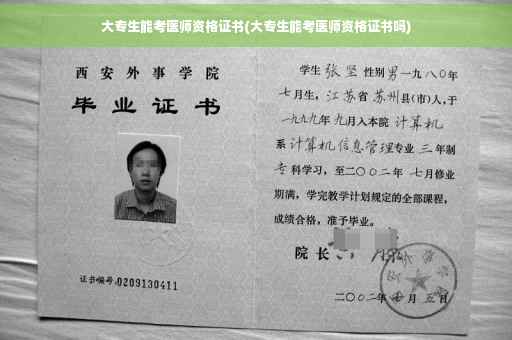 大专生能考医师资格证书(大专生能考医师资格证书吗)
西安外事学院
毕业证书
证书编号:0209130411
学生 张坚 性别 男 一九八〇年
七月生, 江苏省 苏州县(市)人,于
一九九九年 九月入本院 计算机
系 计算机信息管理专业 三 年制
专科学习,至二〇〇二年 七月修业
期满,学完教学计划规定的全部课程,
成绩合格,准予毕业。
院长
二〇〇二年 月 五日